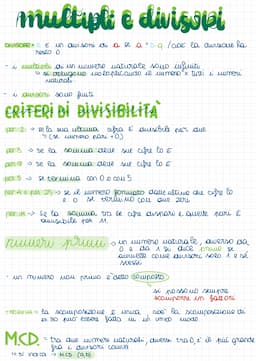 multipli e divisori
DIVISORE → b è un divisore di a se a : b = q / cioè la divisione ha
resto 0
- i multipli di un numero naturale sono infiniti
si ottengono moltiplicando il numero x tutti i numeri
naturali
- i divisori sono finiti
CRITERI DI DIVISIBILITÀ
per 2 → se la sua ultima cifra è divisibile per due
(se numero pari + 0)
per 3 → se la somma delle sue cifre è
per 9 → se la somma delle sue cifre è
per 5 → se termina con 0 o con 5
per 4 o per 25 → se il numero formato dalle ultime due cifre lo
è o se termina con due zeri
per 11 → se la somma tra le cifre dispari e quelle pari è
divisibile per 11
numeri primi → un numero naturale, diverso da
0 e da 1 si dice primo se
ammette come divisori solo 1 e sé
stesso
- un numero non primo è detto composto
si possono sempre
scomporre in fattori
- la scomposizione è unica cioè la scomposizione di
a può essere fatta in un unico modo
M.C.D. - tra due numeri naturali, diversi tra 0, è il più grande
fra i divisori comuni
→ si indica → M.C.D. (a,b)